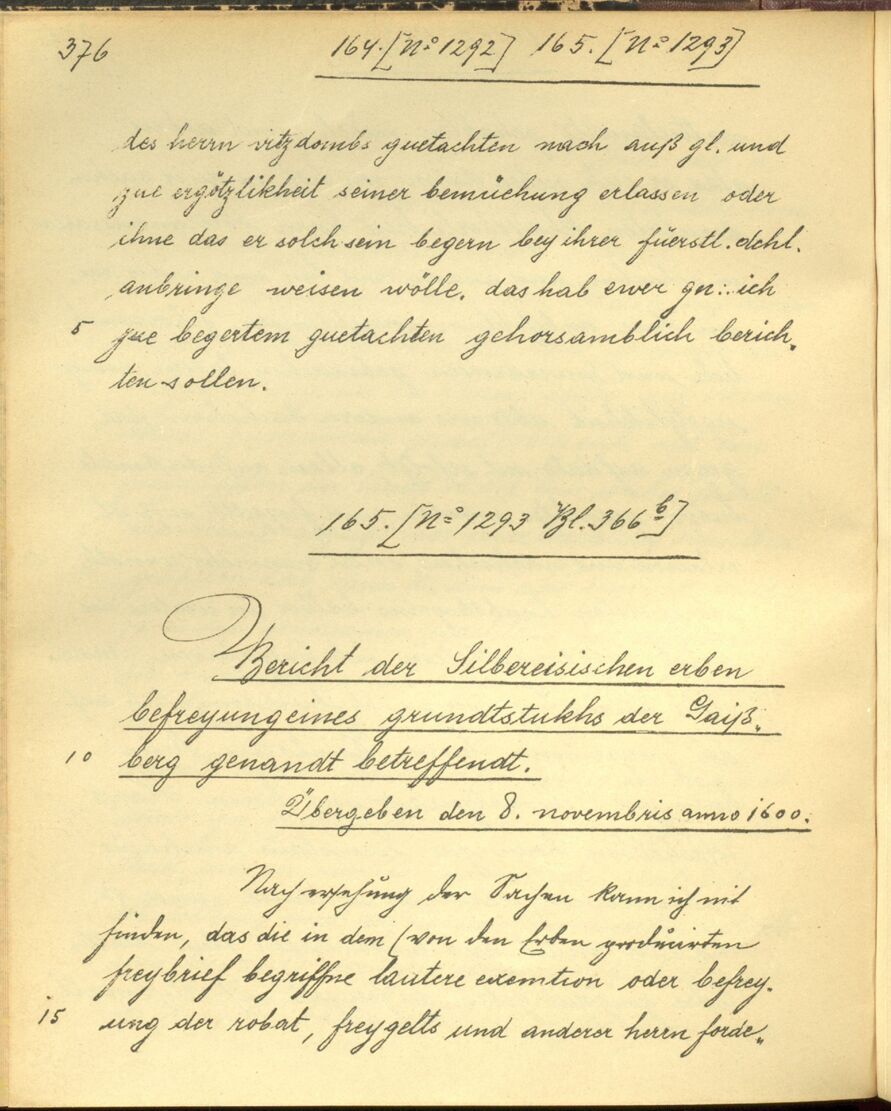 376
164. [No 1292] 165. [No 1293]
des herrn vitzdombs guetachten nach auß gl. und
zue ergötzlikheit seiner bemüchung erlassen oder
ihne das er solch sein begern bey ihrer füerstl. dchl.
anbringe weisen wölle. das hab ewer gn: ich
5 zue begertem guetachten gehorsamblich berich„
ten sollen.
165. [No 1293 Bl. 366b]
Bericht der Silbereisischen erben
befreyung eines grundtstukhs der Gaiß„
10 berg genandt betreffendt.
Übergeben den 8. novembris anno 1600.
Nach ersehung der Sachen kann ich nit
finden, das die in dem (von den Erben producirten
freybrief begriffne lautere exemtion oder befrey„
15 ung der robat, freygelts und anderer herrn forde„